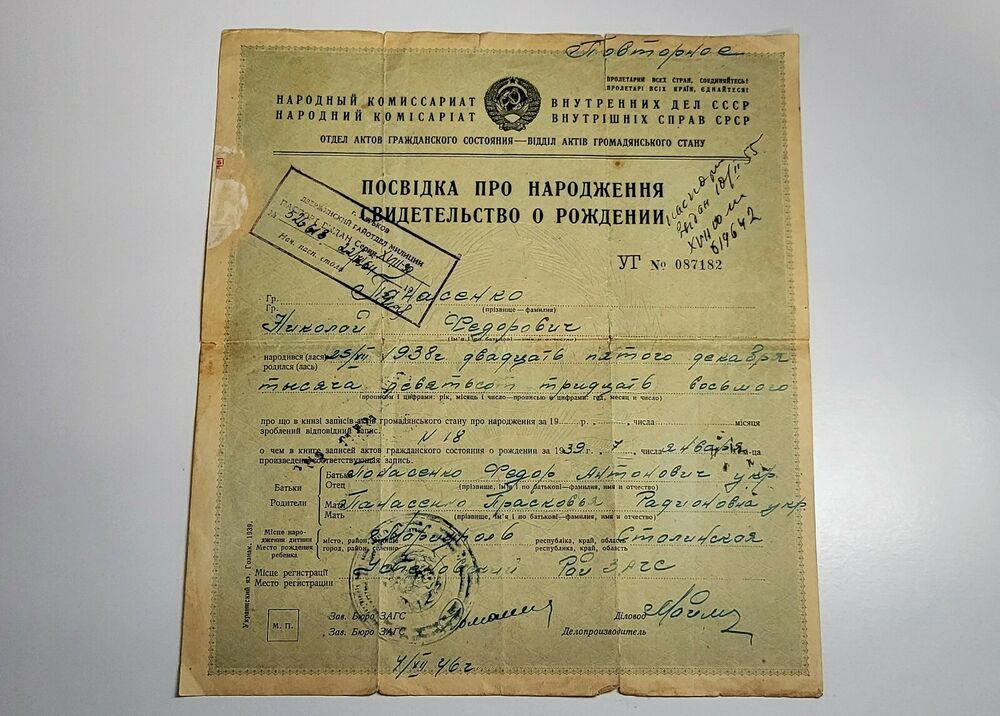 Повторное
ПРОЛЕТАРИИ ВСЕХ СТРАН, СОЕДИНЯЙТЕСЬ!
ПРОЛЕТАРІ ВСІХ КРАЇН, ЄДНАЙТЕСЯ!
НАРОДНЫЙ КОМИССАРИАТ ВНУТРЕННИХ ДЕЛ СССР
НАРОДНИЙ КОМІСАРІАТ ВНУТРІШНІХ СПРАВ СРСР
ОТДЕЛ АКТОВ ГРАЖДАНСКОГО СОСТОЯНИЯ—ВІДДІЛ АКТІВ ГРОМАДЯНСЬКОГО СТАНУ
ПОСВІДКА ПРО НАРОДЖЕННЯ
СВИДЕТЕЛЬСТВО О РОЖДЕНИИ
ДЗЕРЖИНСКИЙ РАЙОТДЕЛ МИЛИЦИИ
г. Харьков
ПАСПОРТ ВЫДАН Серия XVIII-
№ 526618
Нач. пасп. стола
паспорт
выдан 10/II 55
XVII ЮМ
619642
УГ № 087182
Гр. Панасенко
Гр. (прізвище—фамилия)
Николай Федорович
(ім'я і по батькові—имя и отчество)
народився (лася) 25/XII 1938г двадцать пятого декабря
родился (лась)
тысяча девятьсот тридцать восьмого
(прописом і цифрами: рік, місяць і число—прописью и цифрами: год, месяц и число)
про що в книзі записів актів громадянського стану про народження за 19 р. числа місяця
зроблений відповідний запис.
N 18
о чем в книге записей актов гражданского состояния о рождении за 1939 г. 7 числа января м-ца
произведена соответствующая запись.
Батьки
Родители
Батько Понасенко Федор Антонович укр.
Отец (прізвище, ім'я і по батькові—фамилия, имя и отчество)
Мати Панасенко Прасковья Радионовна укр
Мать (прізвище, ім'я і по батькові—фамилия, имя и отчество)
Місце народження дитини
Место рождения ребенка
місто, район, селище Мариуполь республіка, край, область Сталинская
город, район, селение республика, край, область
Місце регистрації
Место регистрации
Рай ЗАГС
М. П.
Зав. Бюро ЗАГС Діловод
Зав. Бюро ЗАГС Делопроизводитель
4/XII 46г
Украинский яз. Гознак. 1939.